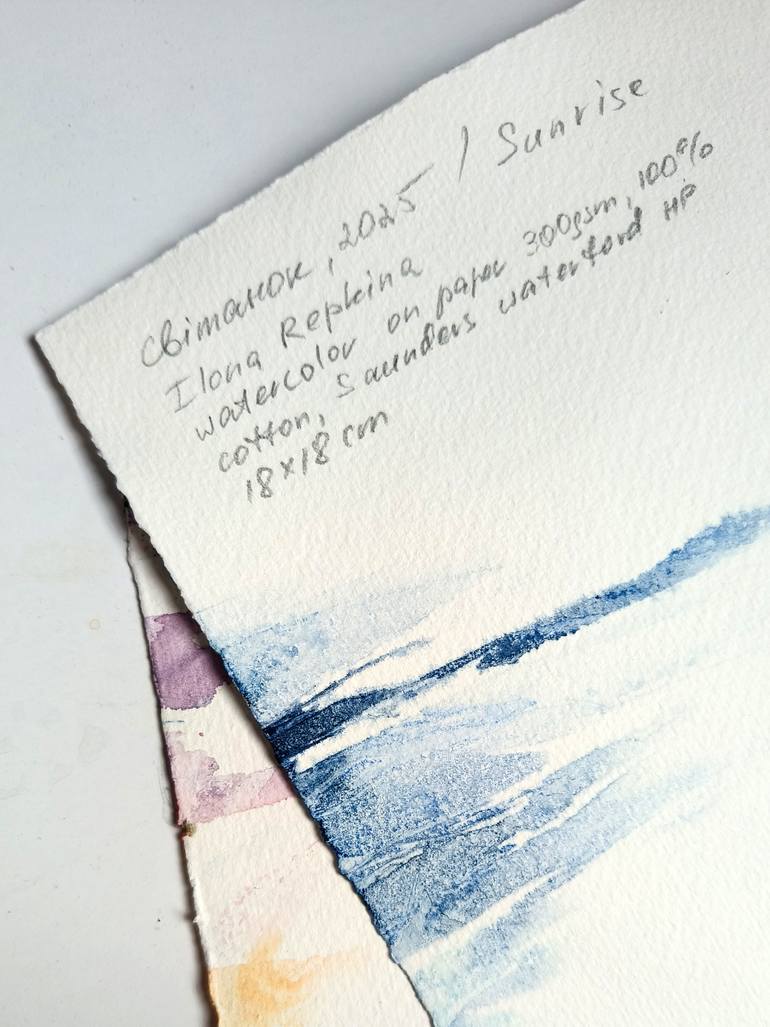 Світанок, 2025 / Sunrise
Ilona Repkina
watercolor on paper 300gsm, 100%
cotton, Saunders waterford HP
18x18 cm